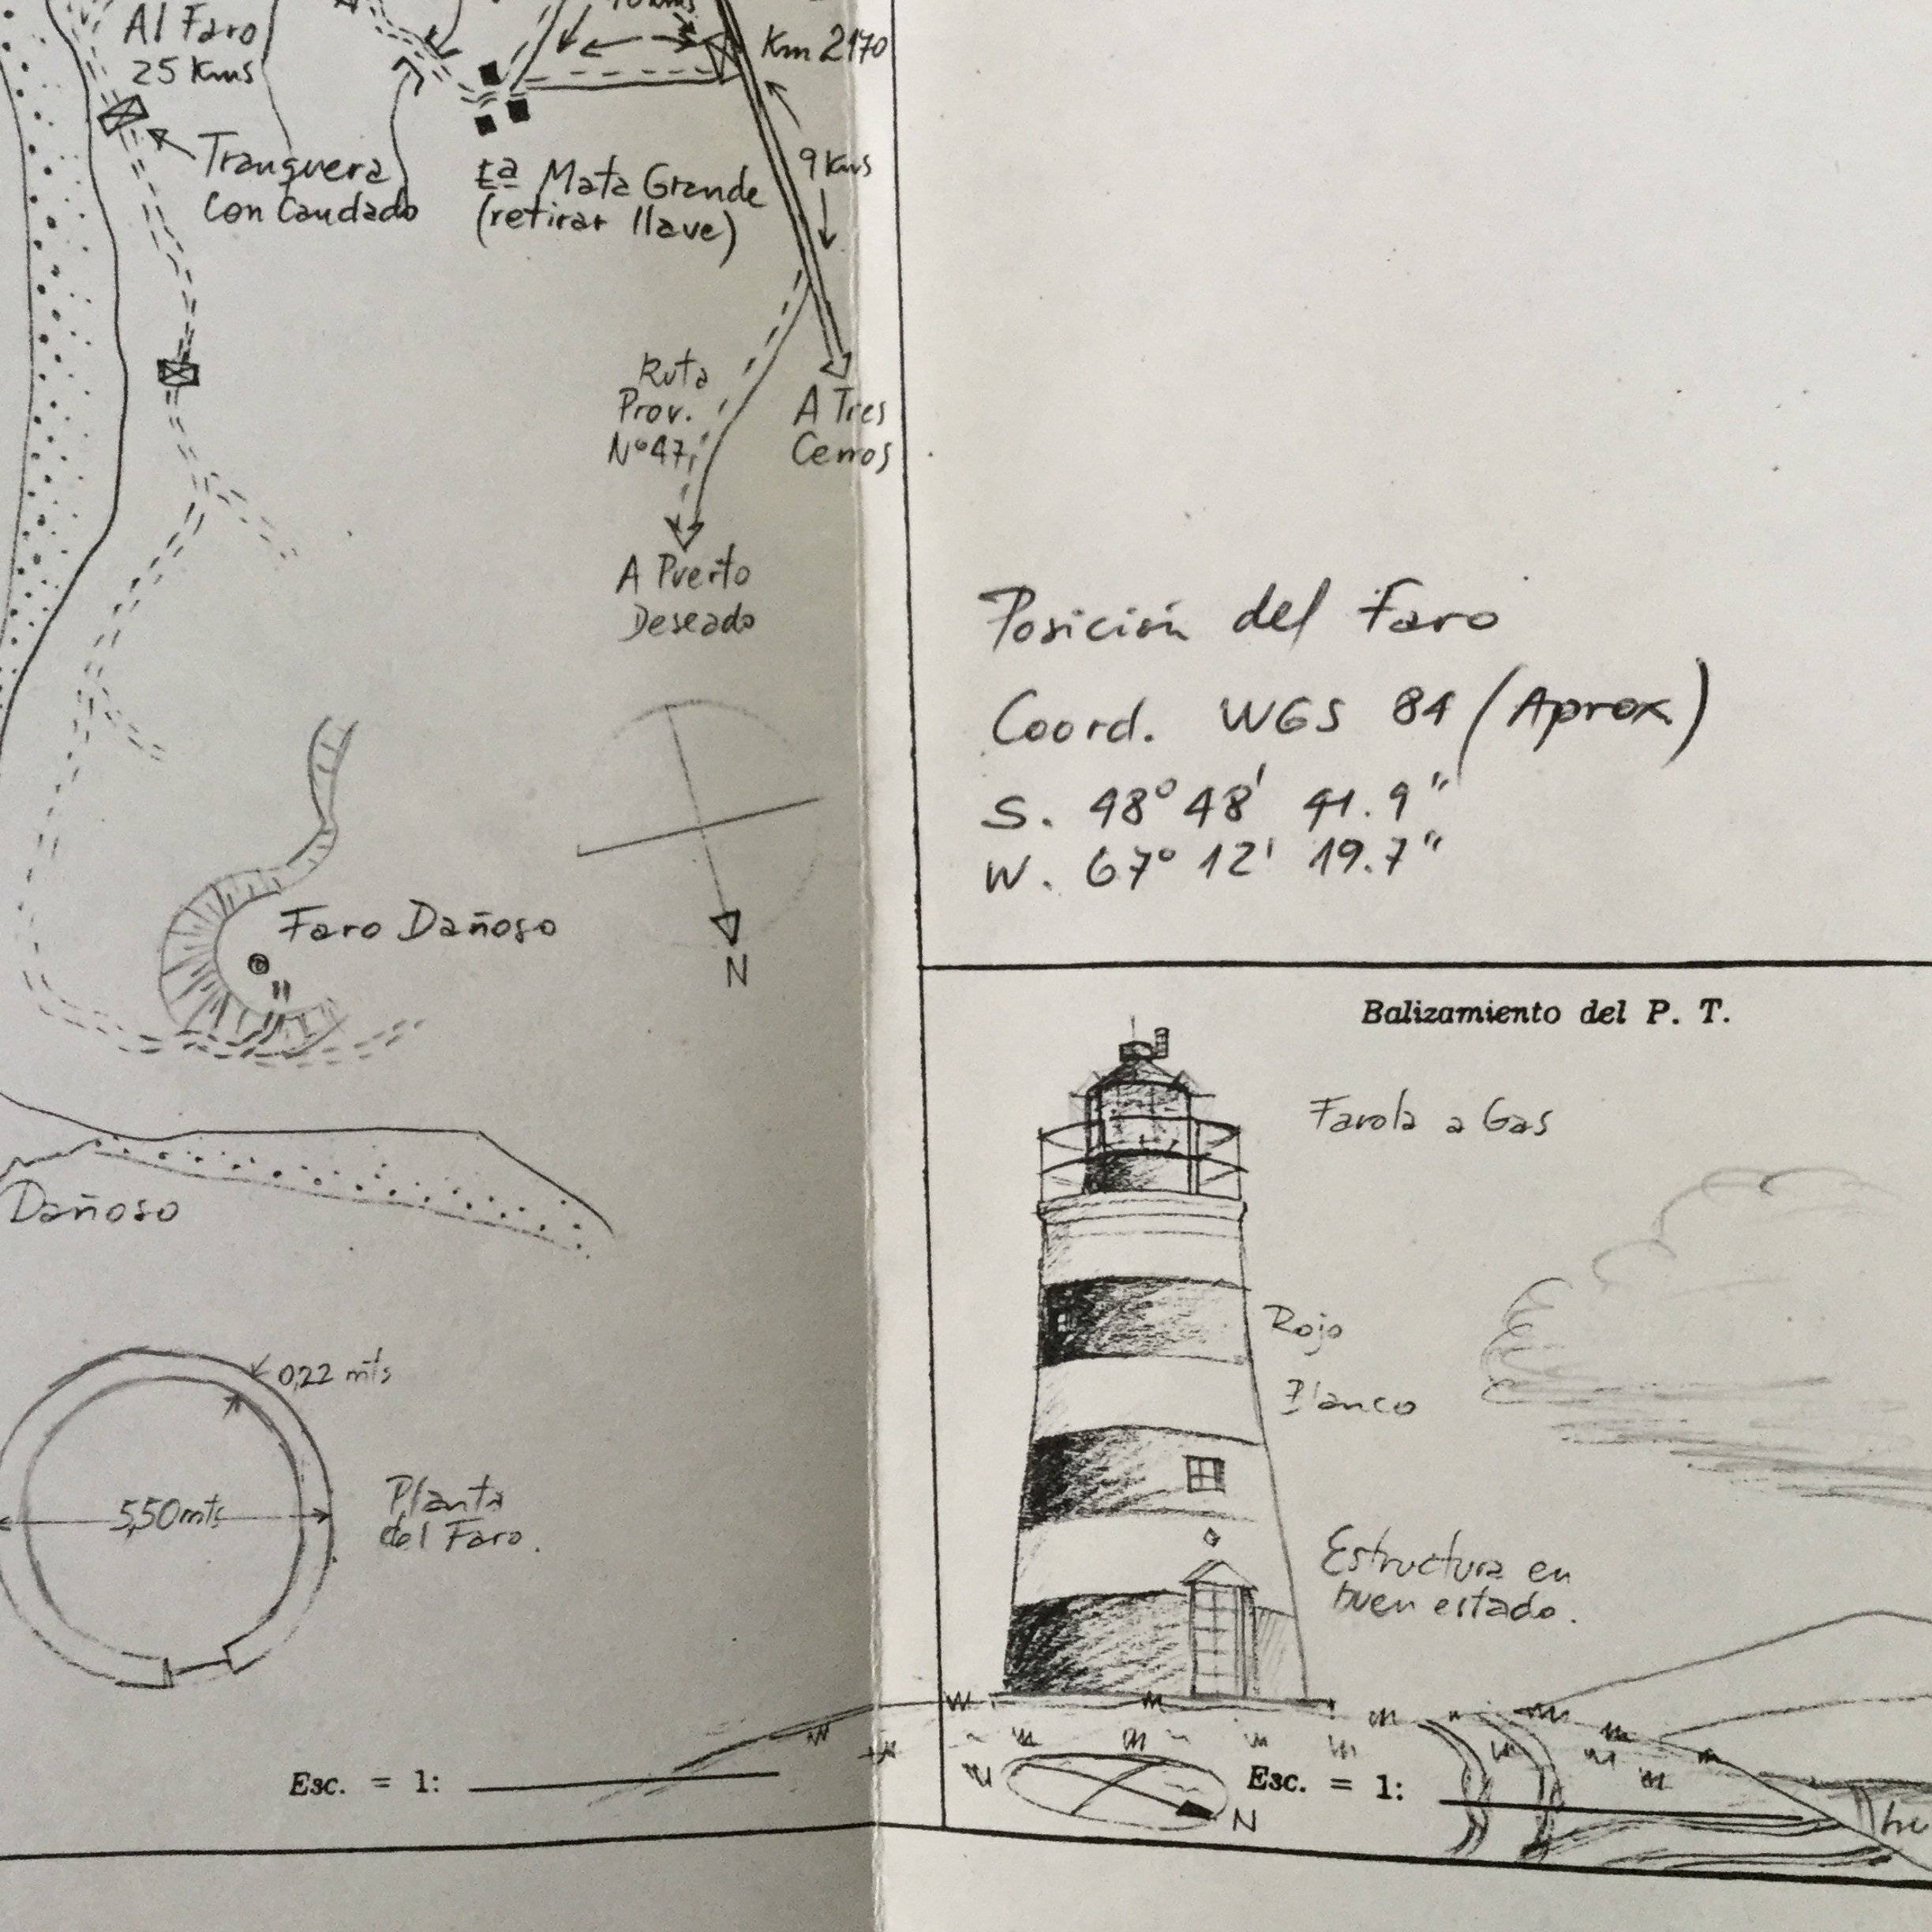 Al Faro
25 Kms
Tranquera
Con Caudado
Ea Mata Grande
(retirar llave)
Km 2170
9 Kms
Ruta
Prov.
Nº47
A Tres
Cerros
A Puerto
Deseado
N
Faro Dañoso
Dañoso
0,22 mts
5,50mts
Planta
del Faro.
Esc. = 1:
Posición del Faro
Coord. WGS 84 (Aprox)
S. 48° 48' 41.9"
W. 67° 12' 19.7"
Balizamiento del P. T.
Farola a Gas
Rojo
Blanco
Estructura en
buen estado.
N
Esc. = 1: